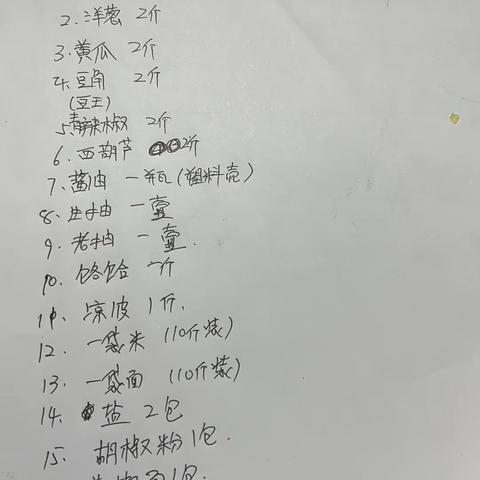 2. 洋葱 2斤
3. 黄瓜 2斤
4. 豆角 2斤
(豆王)
5 青辣椒 2斤
6. 西葫芦 2斤
7. 酱油 一瓶(塑料壳)
8. 生抽 一壶
9. 老抽 一壶.
10. 饹饸 一斤
11. 凉皮 1斤.
12. 一袋米 (10斤装)
13. 一袋面 (10斤装)
14. 盐 2包
15. 胡椒粉 1包.
1包.